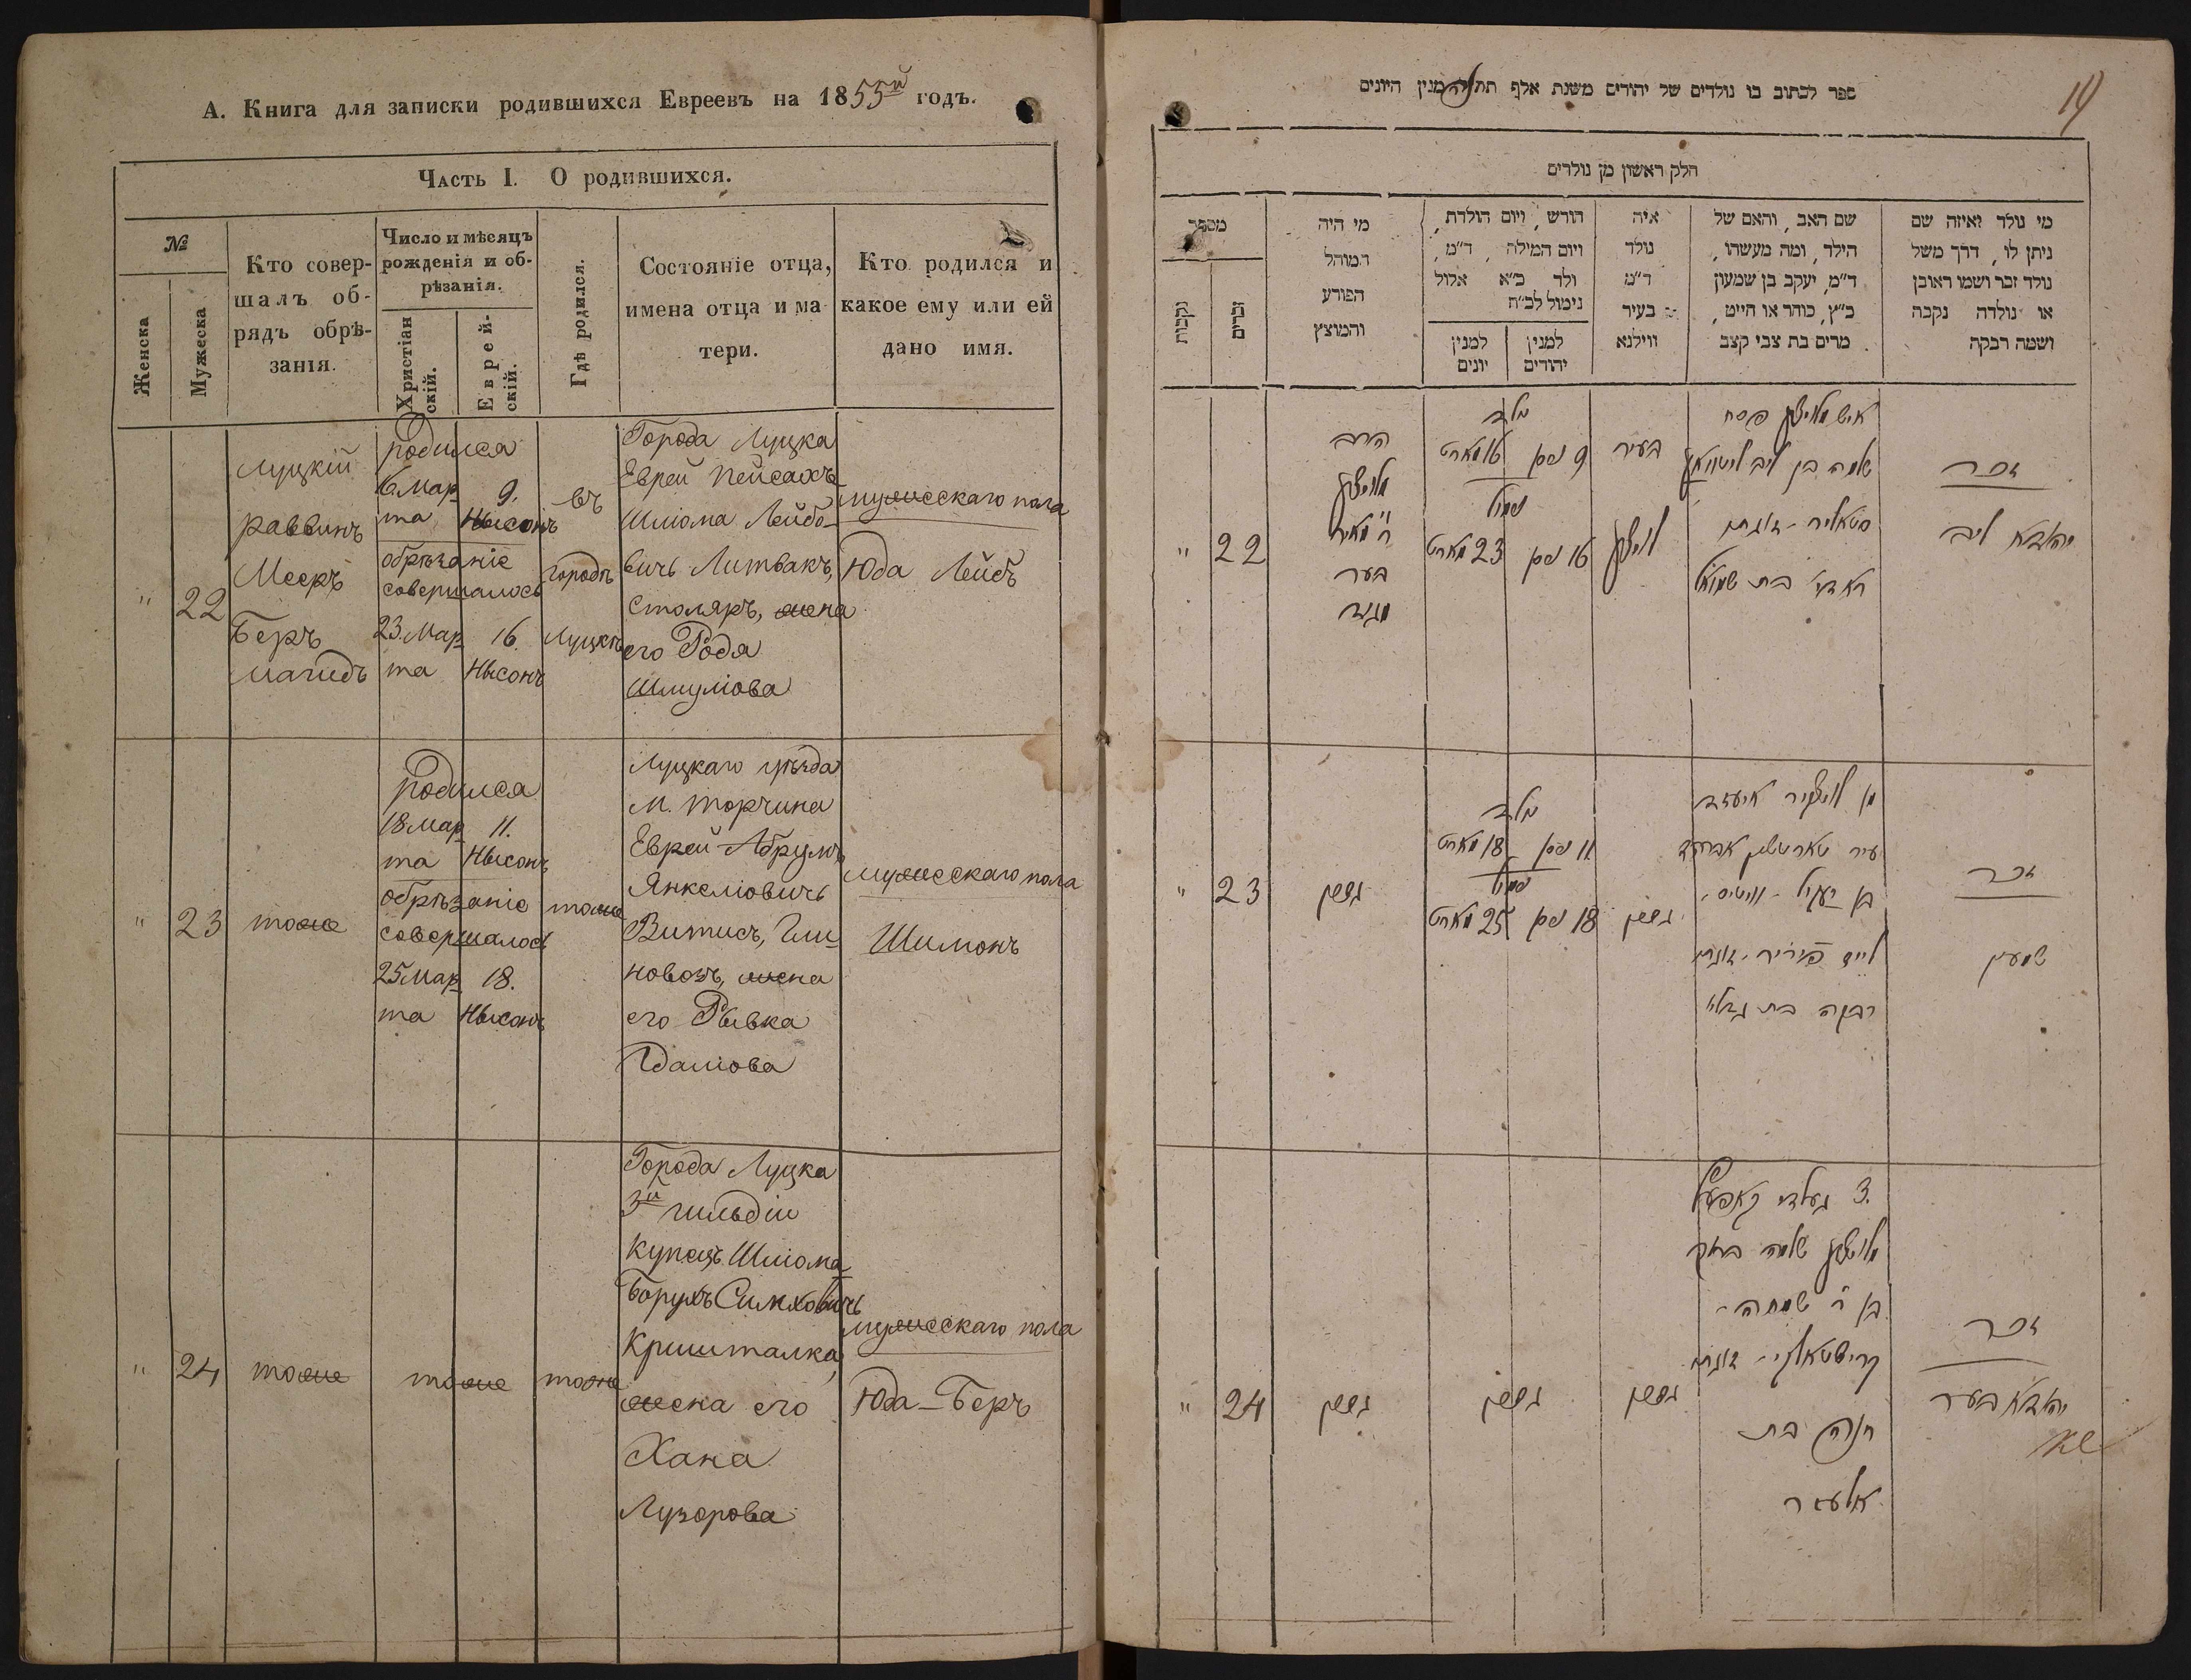 А. Книга для записки родившихся Евреевъ на 1855й годъ.
Часть I. О родившихся.
№
Женска
Мужеска
Кто совер-
шалъ об-
рядъ обрѣ-
занія.
Число и мѣсяцъ
рожденія и об-
рѣзанія.
Христіан
скій.
Еврей-
скій.
Гдѣ родился.
Состояніе отца,
имена отца и ма
тери.
Кто родился и
какое ему или ей
дано имя.
"
22
Луцкій
раввинъ
Мееръ
Беръ
Магидъ
родился
16 Мар 9.
та Нысонъ
обрѣзаніе
совершалось
23 Мар 16.
та Нысонъ
въ
городѣ
Луцкѣ
Города Луцка
Еврей Пейсахъ
Шліома Лейбо-
вичъ Литвакъ,
столяръ, жена
его Родя
Шмуліова
мужескаго пола
Юда Лейбъ
"
23
тоже
родился
18 Мар 11.
та Нысонъ
обрѣзаніе
совершалось
25 Мар 18.
та Нысонъ
тоже
Луцкаго уѣзда
М. Торчина
Еврей Абрумъ
Янкеліовичъ
Витисъ,
жена
его Рывка
Гдаліова
мужескаго пола
Шимонъ
"
24
тоже
тоже
тоже
Города Луцка
3й гильдіи
купецъ Шліома
Борухъ Симховичъ
Кришталка,
жена его
Хана
Лузорова
мужескаго пола
Юда-Беръ
ספר לכתוב בו נולדים של יהודים משנת אלף מנין היונים
19
חלק ראשון מן נולדים
מי נולד ואיזה שם
ניתן לו, דרך משל
נולד זכר ושמו ראובן
או נולדה נקבה
ושמה רבקה
שם האב, והאם של
הילד, ומה מעשהו,
ד״מ, יעקב בן שמעון
כ״ץ, סוחר או חייט,
מרים בת צבי קצב
איה
נולד
ד״מ
בעיר
ווילנא
חודש, ויום הולדת,
ויום המילה, ד״מ,
ולד כ״א אלול
נימול לכ״ח
למנין
יהודים
למנין
יונים
מי היה
המוהל
הפורע
והמוצץ
מספר
זכרים
נקבות
זכר
יהודא ליב
איש לויצק פסח
שלמה בן ליב ליטוואק
סטאליר זוגתו
ראדי בת שמואל
בעיר
לויצק
נולד
9 ניסן 16 מארט
נימול
16 ניסן 23 מארט
הרב
לויצק
ר׳ מאיר
בער
מגיד
22
"
זכר
שמעון
עיר טארטשין אברהם
בן יעקיל וויטיס
זוגתו
רבקה בת גדליי
נולד
11 ניסן 18 מארט
נימול
18 ניסן 25 מארט
23
"
זכר
יהודא בער
3 גילדי קאפיץ
לויצק שלמה ברוך
בן ר׳ שמחה
קרישטאלקי זוגתו
חנה בת
אלעזר
24
"